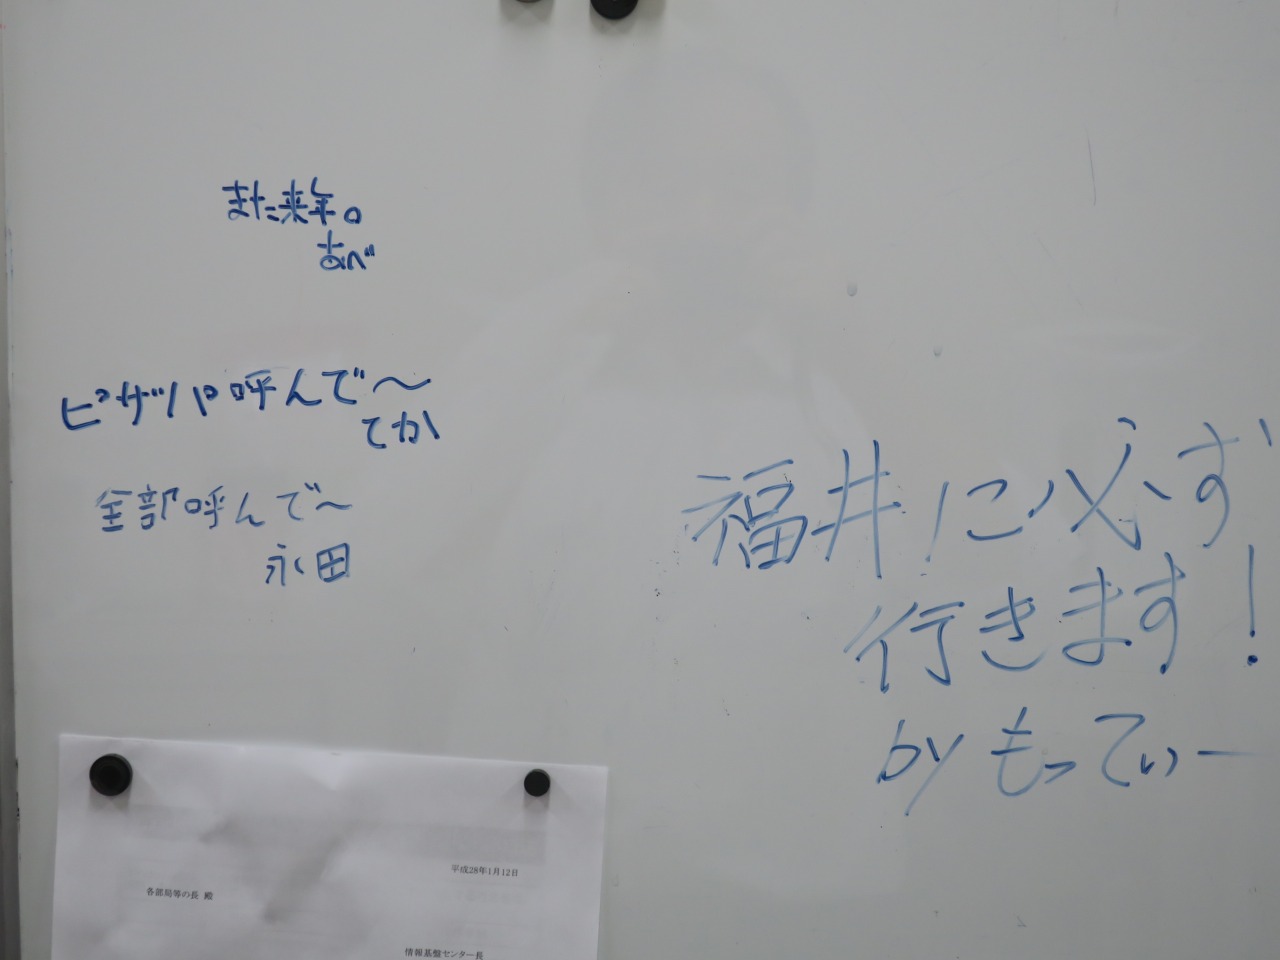 また来年。
あべ
ピザパ呼んで〜
てか
全部呼んで〜
永田
福井に必ず
行きます!
by もってぃー
平成28年1月12日
各部局等の長 殿
情報基盤センター長